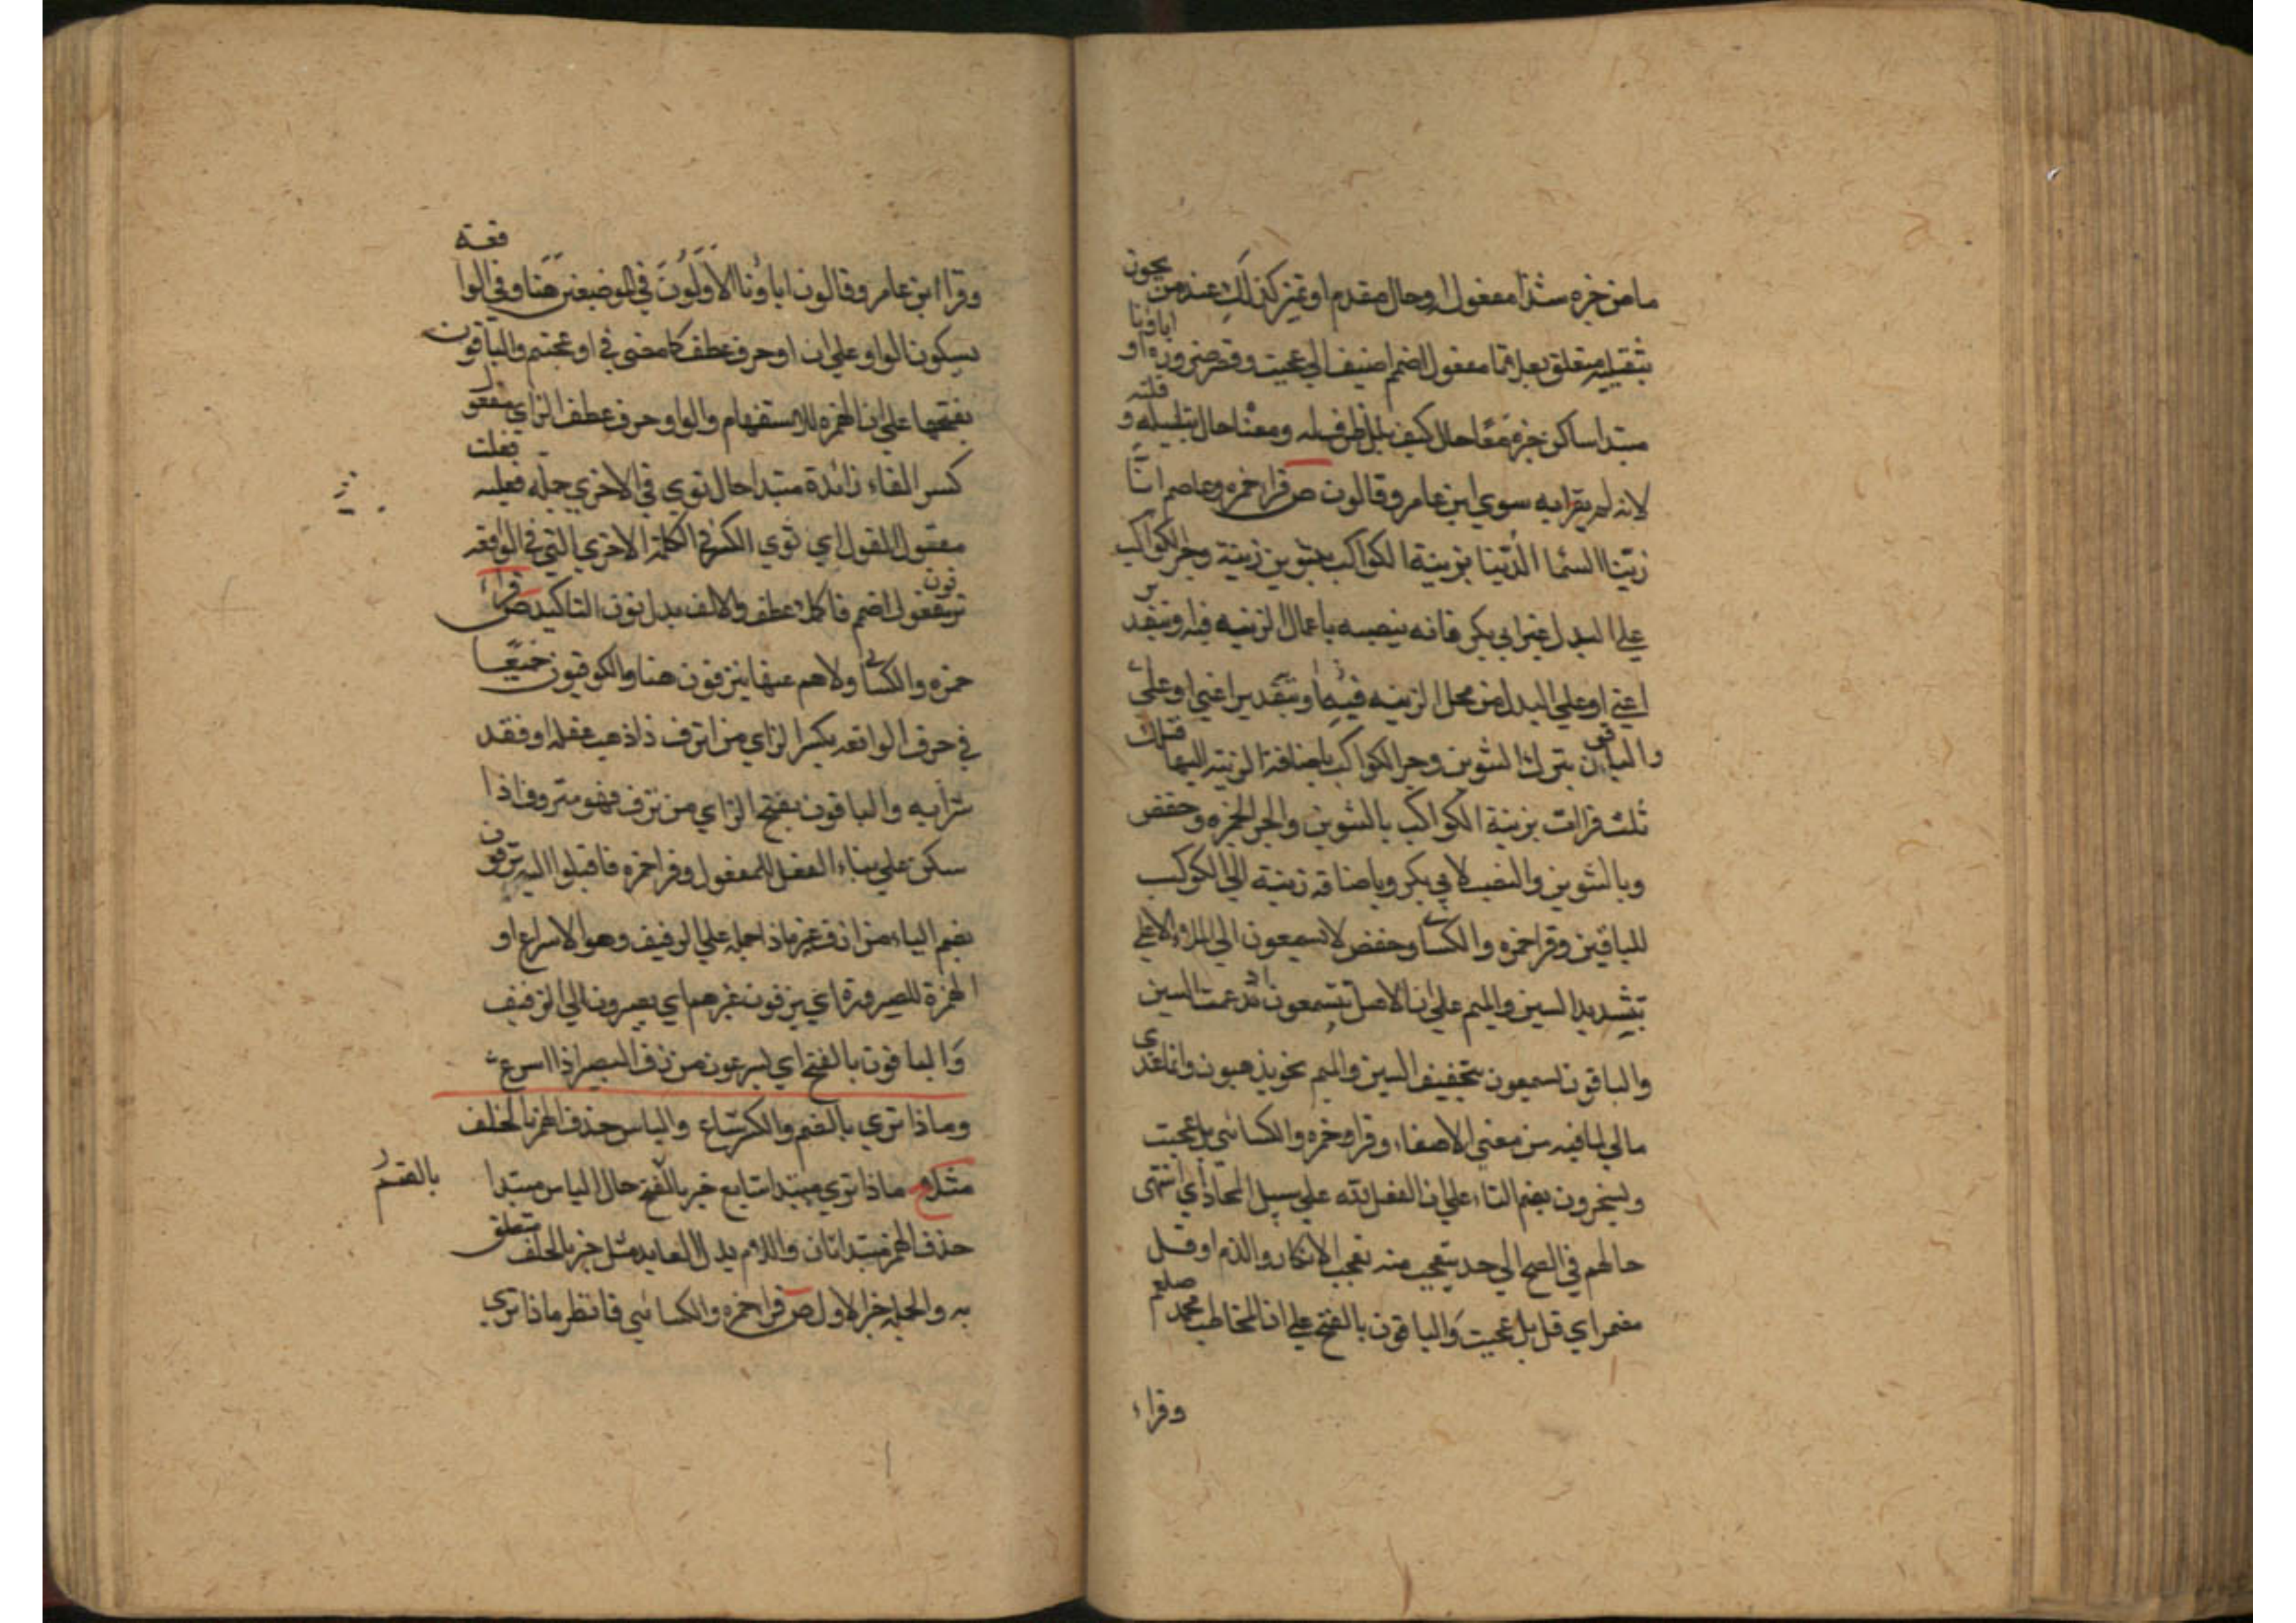 ما من خبره شذا مفعول او حال مقدم او تميز كذلك عند من يجون
بثقيله متعلق بعل اتما مفعول اضمم اضيف الي عجبت وقصر ضرورة او اباؤنا
مبتدا ساكن خبره معًا حال كيف بلل ظرفيله ومعنا حال بتليله و قلته
لانه لم يقرا به سوي ابن عامر وقالون ص قرا حمزه وعاصم انّا
زيّنا السّما الدّنيا بزينة الكواكب بتنوين زينة وجر الكواكب
علي البدل غير ابي بكر فانه ينصبه باعمال الزينه فيه او بتقدير
اعني او علي البدل من محل الزينه فيهما وبتقدير اعني او علي
والباقون بترك التنوين وجر الكواكب باضافة الزينه اليها فتلك
ثلث قرات بزينة الكواكب بالتنوين والجر لحمزه وحفص
وبالتنوين والنصب لابي بكر وباضافة زينة الي الكواكب
للباقين وقرا حمزه والكسائي وحفص لا يسمعون الي الملا الاعلي
بتشديد السين والميم علي ان الاصل يتسمعون ادغمت السين
والباقون يسمعون بتخفيف السين والميم نحو يذهبون وانما عدي
مالي لما فيه من معني الاصغاء وقرا حمزه والكسائي بل عجبت
ويسخرون بضم التاء علي ان الفعل لله علي سبيل المجاز اي انتهي
حالهم في القبح الي حد يتعجب منه تعجب الانكار والذم او قل
مضمر اي قل بل عجبت والباقون بالفتح علي ان المخاطب محمد صلعم
وقراء
وقرا ابن عامر وقالون اباؤنا الاوّلون في الموضعين هنا وفي الواقعة
بسكون الواو علي ان او حرف عطف كما مضي في او عجبتم والباقون
بفتحها علي ان الهمزه للاستفهام والواو حرف عطف الزاي مفعول
كسر الفاء زائدة مبتدا حال ثوي في الاخري جملة فعليه نقلت
مفعول القول اي ثوي الكسر في الكلمة الاخري التي في الواقعه
يزفون مفعول اضمم فاكملا عطف والالف بدل نون التاكيد ص قراء
حمزه والكسائي ولا هم عنها ينزفون هنا والكوفيون جميعًا
في حرف الواقعه بكسر الزاي من انزف ذا ذهب عقله او فقد
شرابه والباقون بفتح الزاي من نزف فهو منزوف اذا
سكر علي بناء الفعل للمفعول وقرا حمزه فاقبلوا اليه يزفون
بضم الياء من ازف غيره اذا حمله علي الزفيف وهو الاسراع او
الهمزة للصيرورة اي يزفون غيرهم اي يصيرون الي الزفيف
والباقون بالفتح اي يسرعون من زف البعير اذا اسرع
وماذا تري بالضم والكسر شاع والياس حذف الهمز بالخلف
مثلا ح ماذا تري مبتدا شايع خبر بالضم حال الياس مبتدا
بالضم
حذف الهمز مبتدا ثان واللام بدل العايد مثل خبر بالخلف متعلق
به والجمله خبر الاول ص قرا حمزه والكسائي فانظر ماذا تري